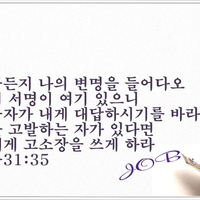 든지 나의 변명을 들어다오
서명이 여기 있으니
자가 내게 대답하시기를 바라
고발하는 자가 있다면
게 고소장을 쓰게 하라
31:35
JOB